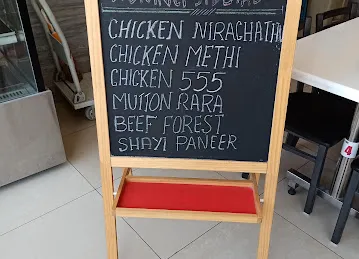 CHICKEN NIRACHATHU
CHICKEN METHI
CHICKEN 555
MUTTON RARA
BEEF FOREST
SHAYI PANEER
4